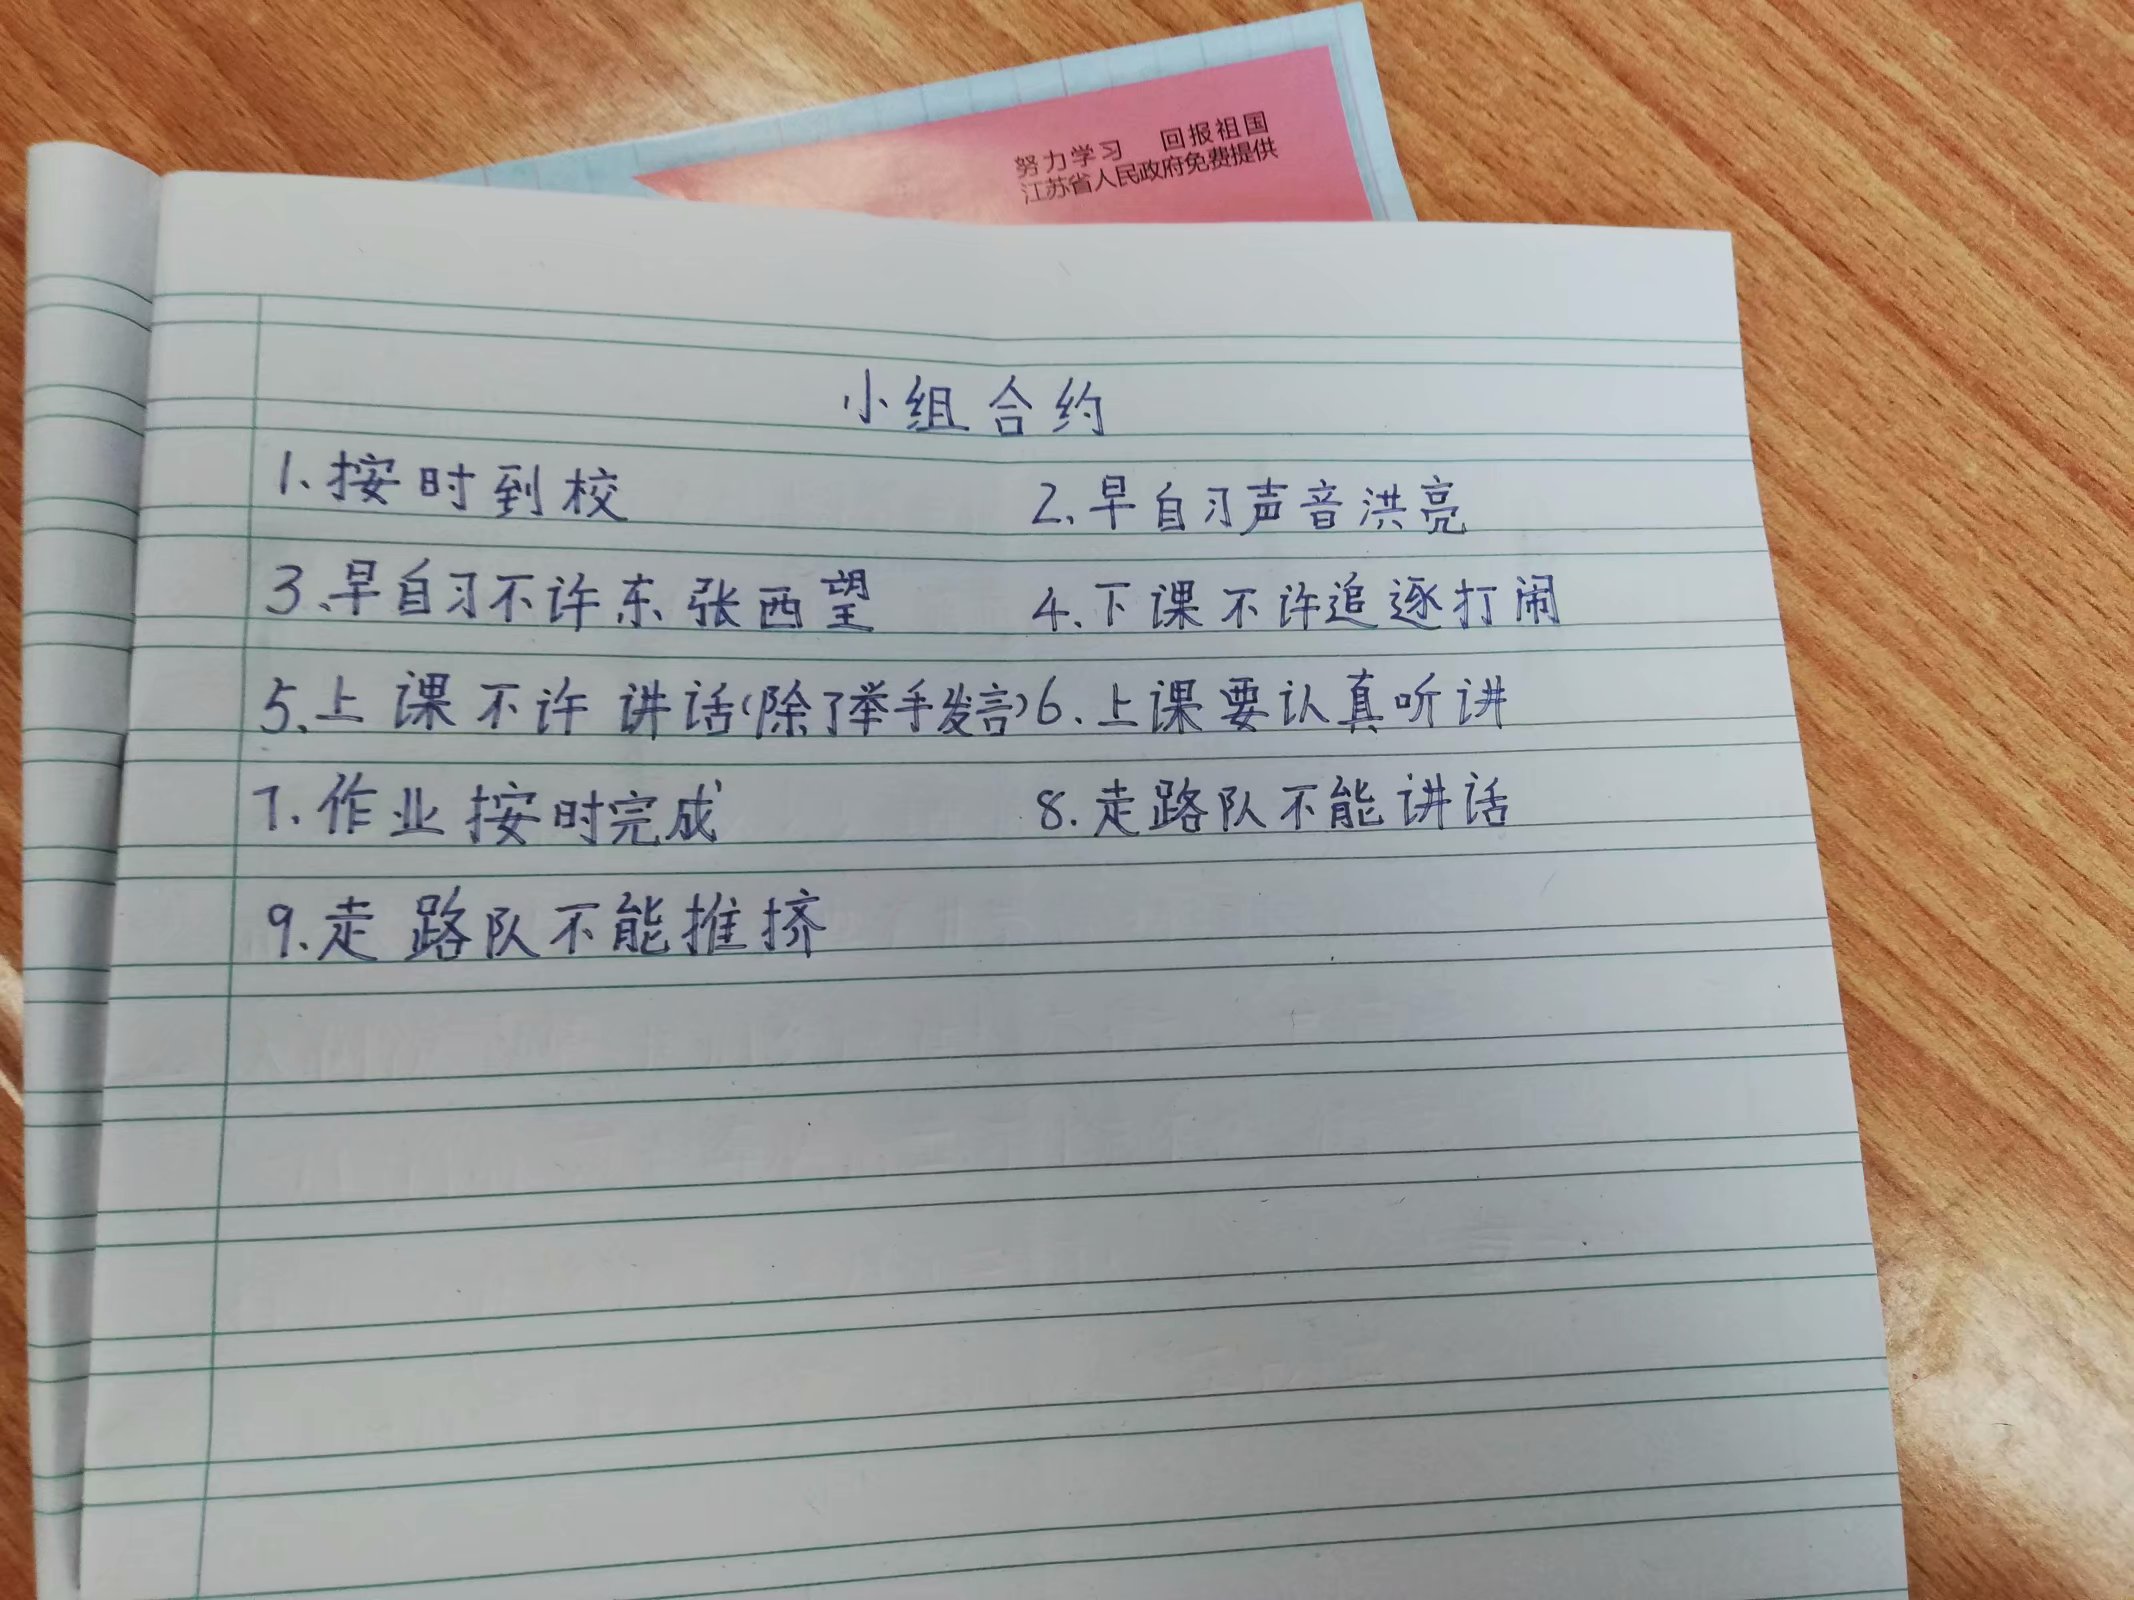 努力学习 回报祖国
江苏省人民政府免费提供
小组合约
1、按时到校 2、早自习声音洪亮
3、早自习不许东张西望 4、下课不许追逐打闹
5、上课不许讲话(除了举手发言) 6、上课要认真听讲
7、作业按时完成 8.走路队不能讲话
9.走路队不能推挤